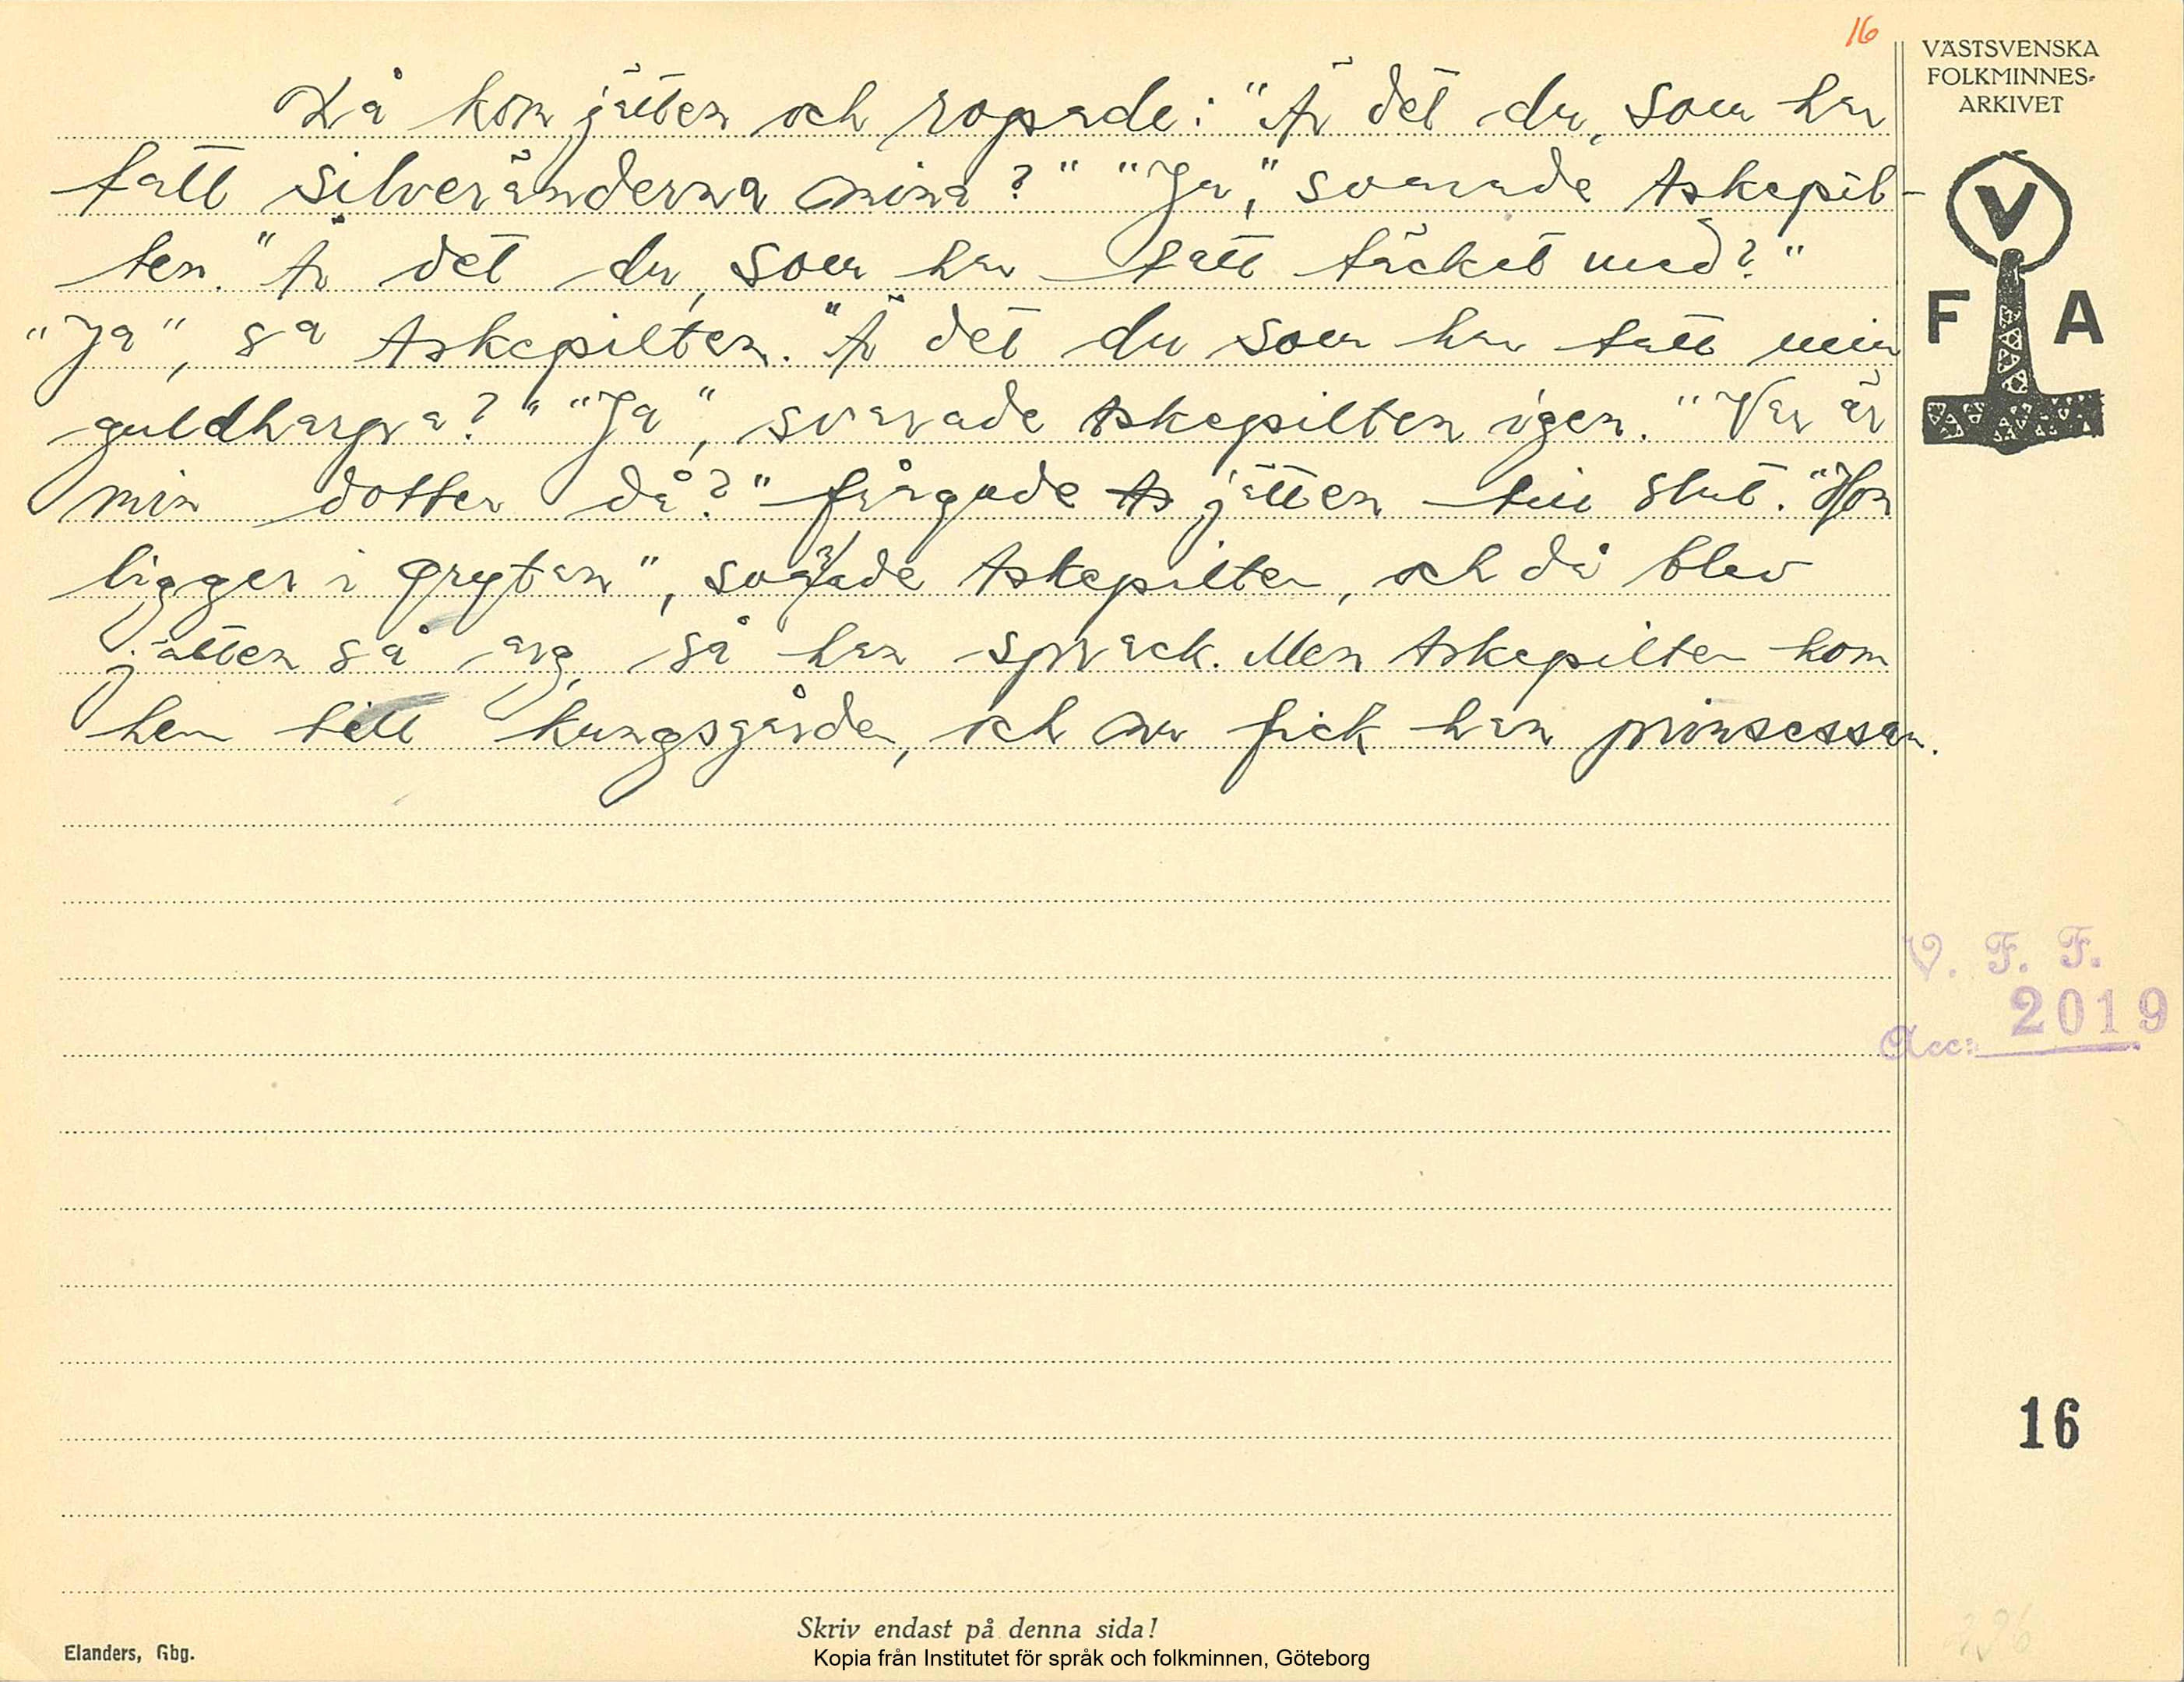 16
Då kom jätten och ropade: "Är det du, som har
tatt silveränderna mina?" "Ja," svarade Askepil-
ten. "Är det du, som har tatt täcket med?"
"Ja", sa Askepilten. "Är det du som har tatt min
guldharpa?" "Ja", svarade Askepilten igen. "Var är
min dotter då?" frågade As jätten till slut. "Hon
ligger i grytan", svarade Askepilten, och då blev
jätten så arg, så han sprack. Men Askepilten kom
hem till kungsgården, och nu fick han prinsessan.
VÄSTSVENSKA
FOLKMINNES-
ARKIVET
V
F A
V. F. F.
Acc: 2019
16
Skriv endast på denna sida!
Elanders, Gbg.
Kopia från Institutet för språk och folkminnen, Göteborg